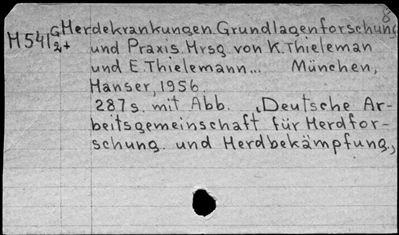 8
M54 G 2+ Herdekrankungen. Grundlagenforschung
und Praxis. Hrsg. von K. Thieleman
und E. Thielemann... München,
Hanser, 1956.
287 s. mit Abb. „Deutsche Ar-
beitsgemeinschaft für Herdfor-
schung. und Herdbekämpfung.,